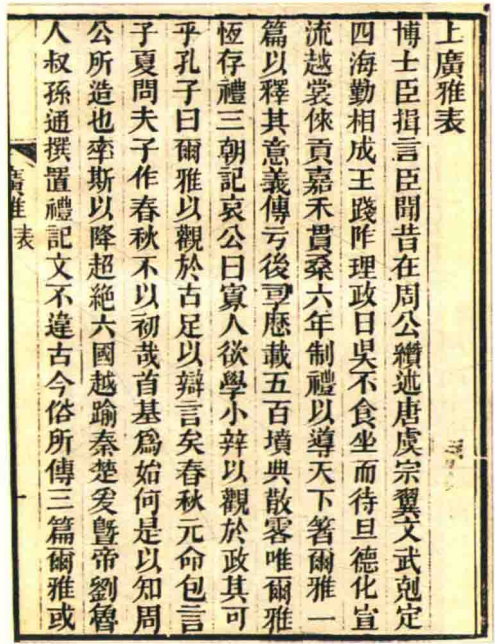 上廣雅表
博士臣揖言臣聞昔在周公纘述唐虞宗翼文武剋定
四海勤相成王踐阼理政日吳不食坐而待旦德化宣
流越裳倈貢嘉禾貫桑六年制禮以導天下著爾雅一
篇以釋其意義傳亏後孠歷載五百墳典散零唯爾雅
恆存禮三朝記哀公曰寡人欲學小辨以觀於政其可
乎孔子曰爾雅以觀於古足以辯言矣春秋元命包言
子夏問夫子作春秋不以初哉首基爲始何是以知周
公所造也率斯以降超絶六國越踰秦楚爰曁帝劉魯
人叔孫通撰置禮記文不違古今俗所傳三篇爾雅或
廣雅 表